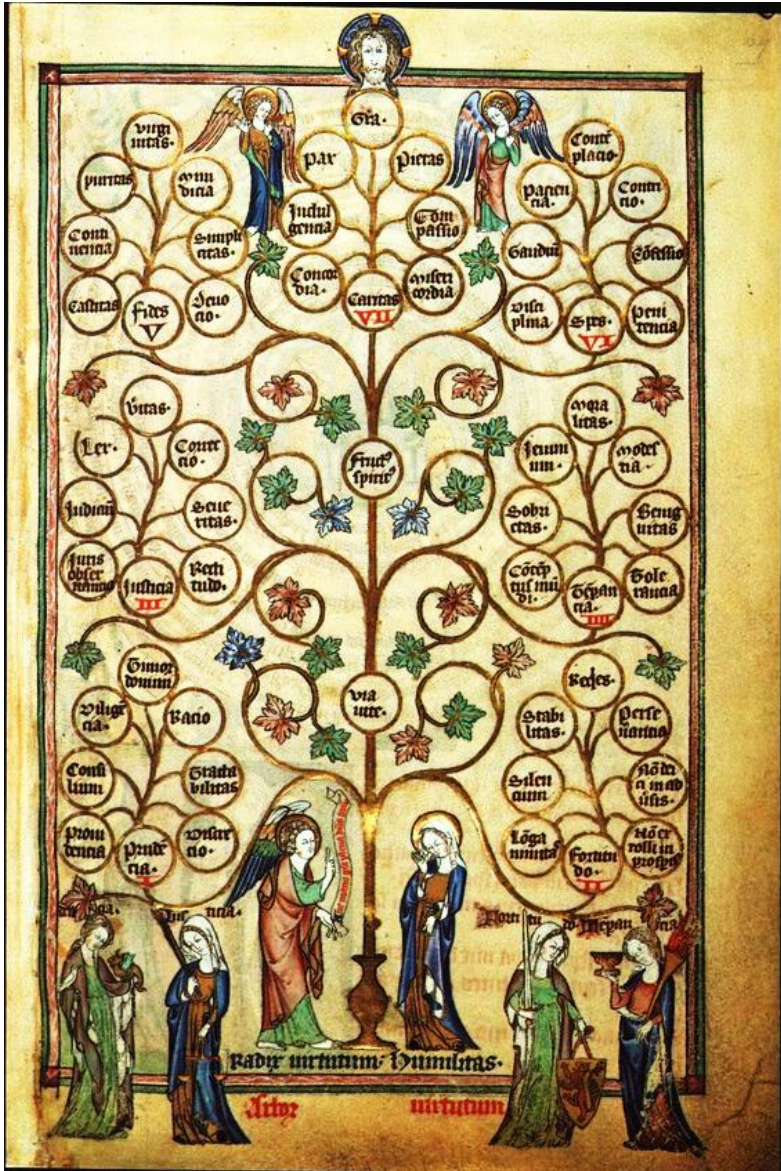 Gra·
Pax
Pietas
Indul
gencia
Com
passio
Concor
dia·
Miseri
cordia
Caritas
VII
Virgi
nitas·
Puritas
Mun
dicia
Conti
nencia
Simpli
citas·
Castitas
Devo
cio·
Fides
V
Contē
placio·
Pacien
cia·
Contri
cio·
Gaudiū
Cōfessio
Disci
plina·
Peni
tencia
Spes·
VI
Fruct᷒
spirit᷒
Vitas·
Lex·
Correc
cio·
Judiciū
Seve
ritas·
Juris
obser
vancia
Recti
tudo·
Justicia
III
Mora
litas·
Jeiuni
um·
Modes
tia·
Sobri
etas·
Benig
nitas
Cōtēp
tus mū
di·
Tole
rancia
Tēpan
cia·
IIII
Via
vite·
Timor
domini
Diligē
cia·
Racio
Consi
lium
Tracta
bilitas
Provi
dencia
Discre
cio·
Prudē
cia·
I
Requies·
Stabi
litas·
Perse
verancia
Silen
cium
Nō dei
ci in ad
v̄sis·
Lōga
nimitas
Nō ex
tolli in
prosp̄is
Fortitu
do·
II
Justicia·
Fortitudo·
Tēpancia
Radix virtutum: Humilitas·
Arbor virtutum